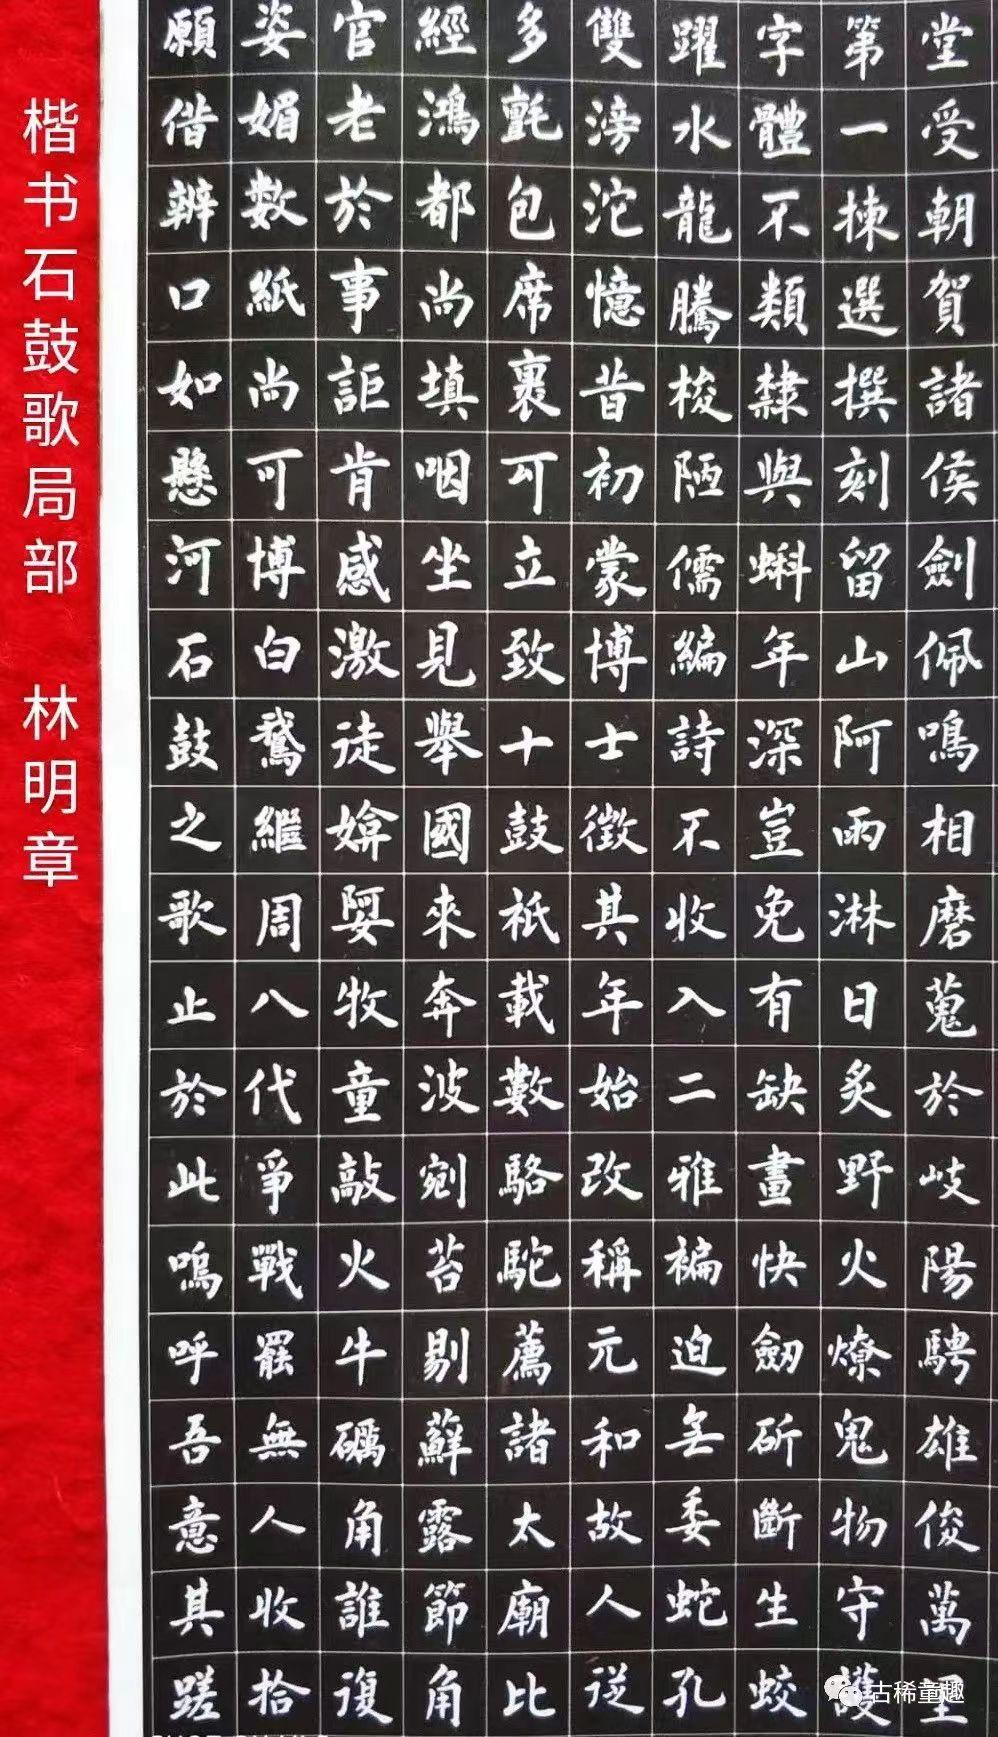 堂受朝賀諸侯劍佩鳴相磨蒐於岐陽騁雄俊萬里
第一揀選撰刻留山阿雨淋日炙野火燎鬼物守護
字體不類隸與蝌年深豈免有缺畫快劒斫斷生蛟
躍水龍騰梭陋儒編詩不收入二雅褊迫無委蛇孔
雙滂沱憶昔初蒙博士徵其年始改稱元和故人從
多氈包席裹可立致十鼓祇載數駱駝薦諸太廟比
經鴻都尚填咽坐見舉國來奔波剜苔剔蘚露節角
官老於事詎肯感激徒媕娿牧童敲火牛礪角誰復
姿媚數紙尚可博白鵞繼周八代爭戰罷無人收拾
願借辨口如懸河石鼓之歌止於此嗚呼吾意其蹉
楷书石鼓歌局部 林明章
古稀童趣